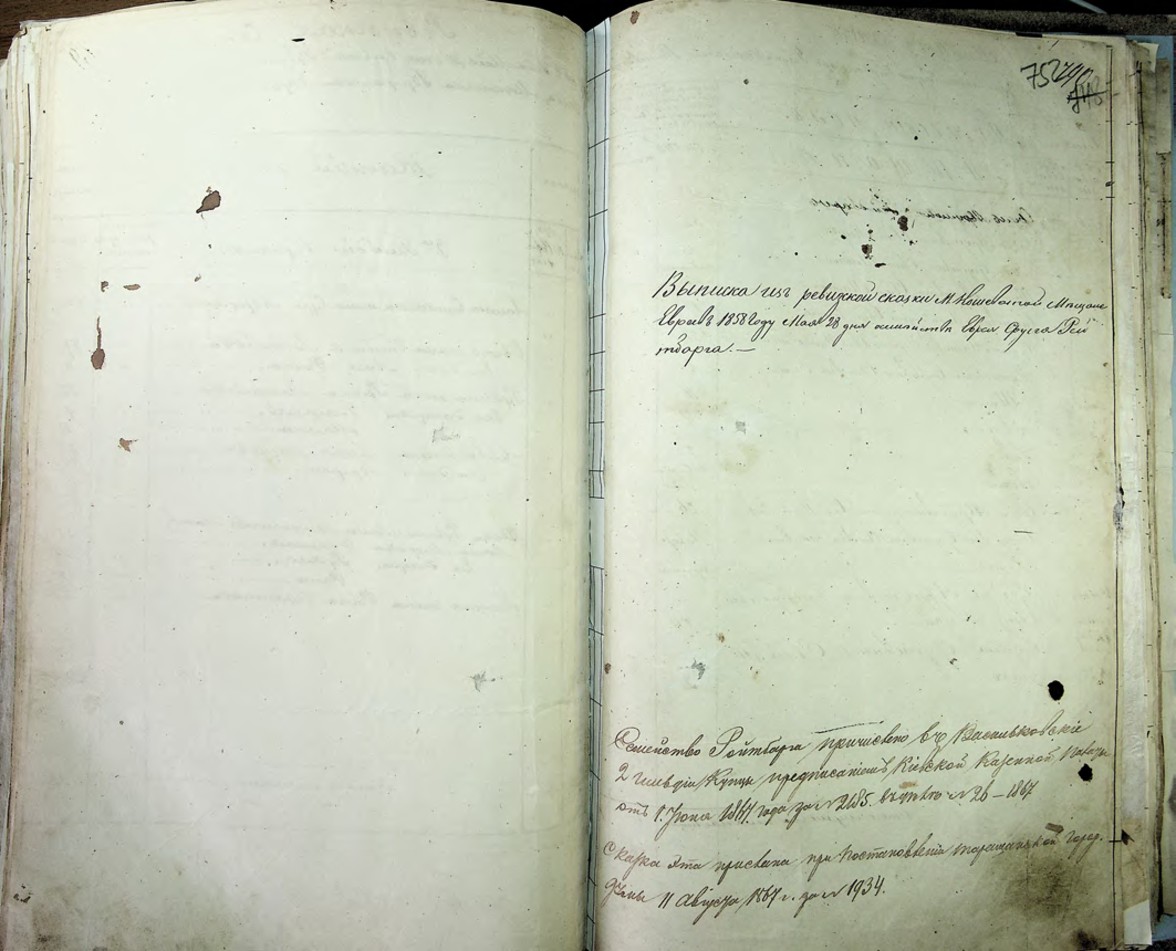 752
Выписка изъ ревизкой сказки М. Кошеватой Мещанъ
Евреевъ 1858 году Мая 28 дня семейства Еврея Сруля Рой
тбарга. —
Семейство Ройтбарга причислено въ Васильковскіе
2 гильдіи Купцы предписаніемъ Кіевской Казенной Палаты
отъ 1. Іюня 1867 года за № 2185.
№ 26 – 1867
Сказка эта прислана при постановленіи Таращанской Город.
Думы 11 Августа 1867 г. за № 1934.